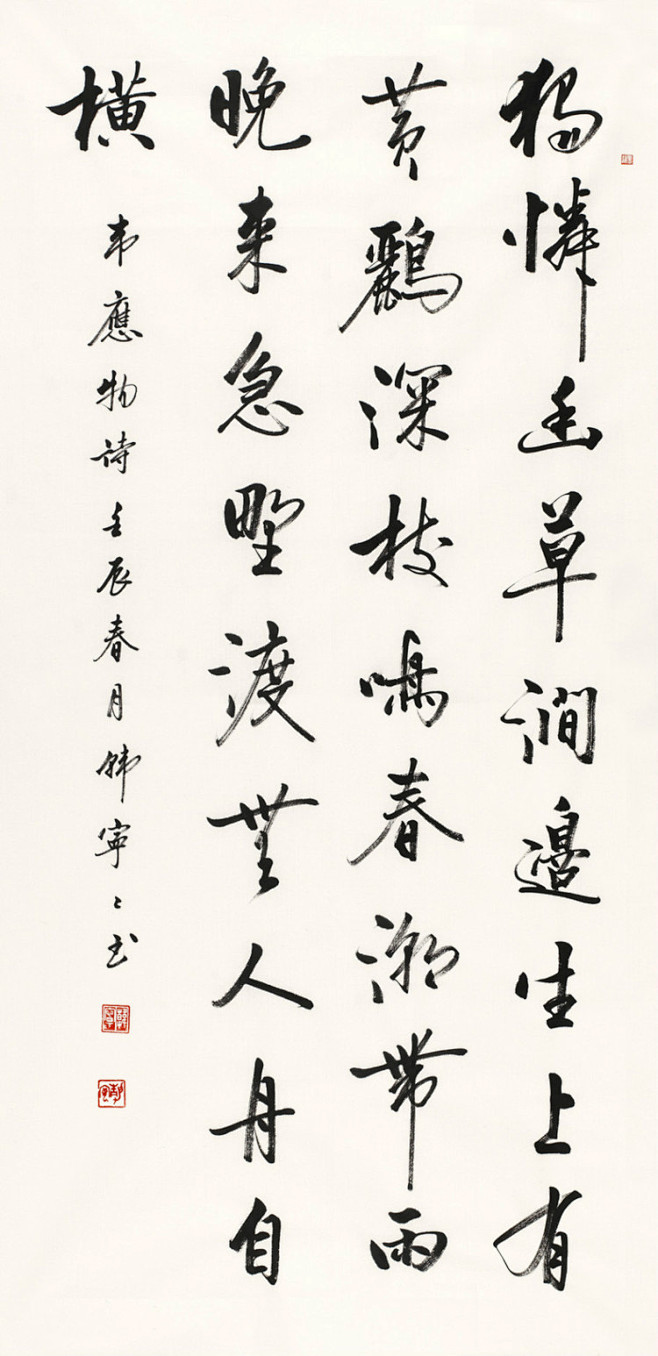 獨憐幽草澗邊生上有
黄鸝深枝鳴春潮帶雨
晚来急野渡無人舟自
橫
韦應物詩壬辰春月韩寧々书